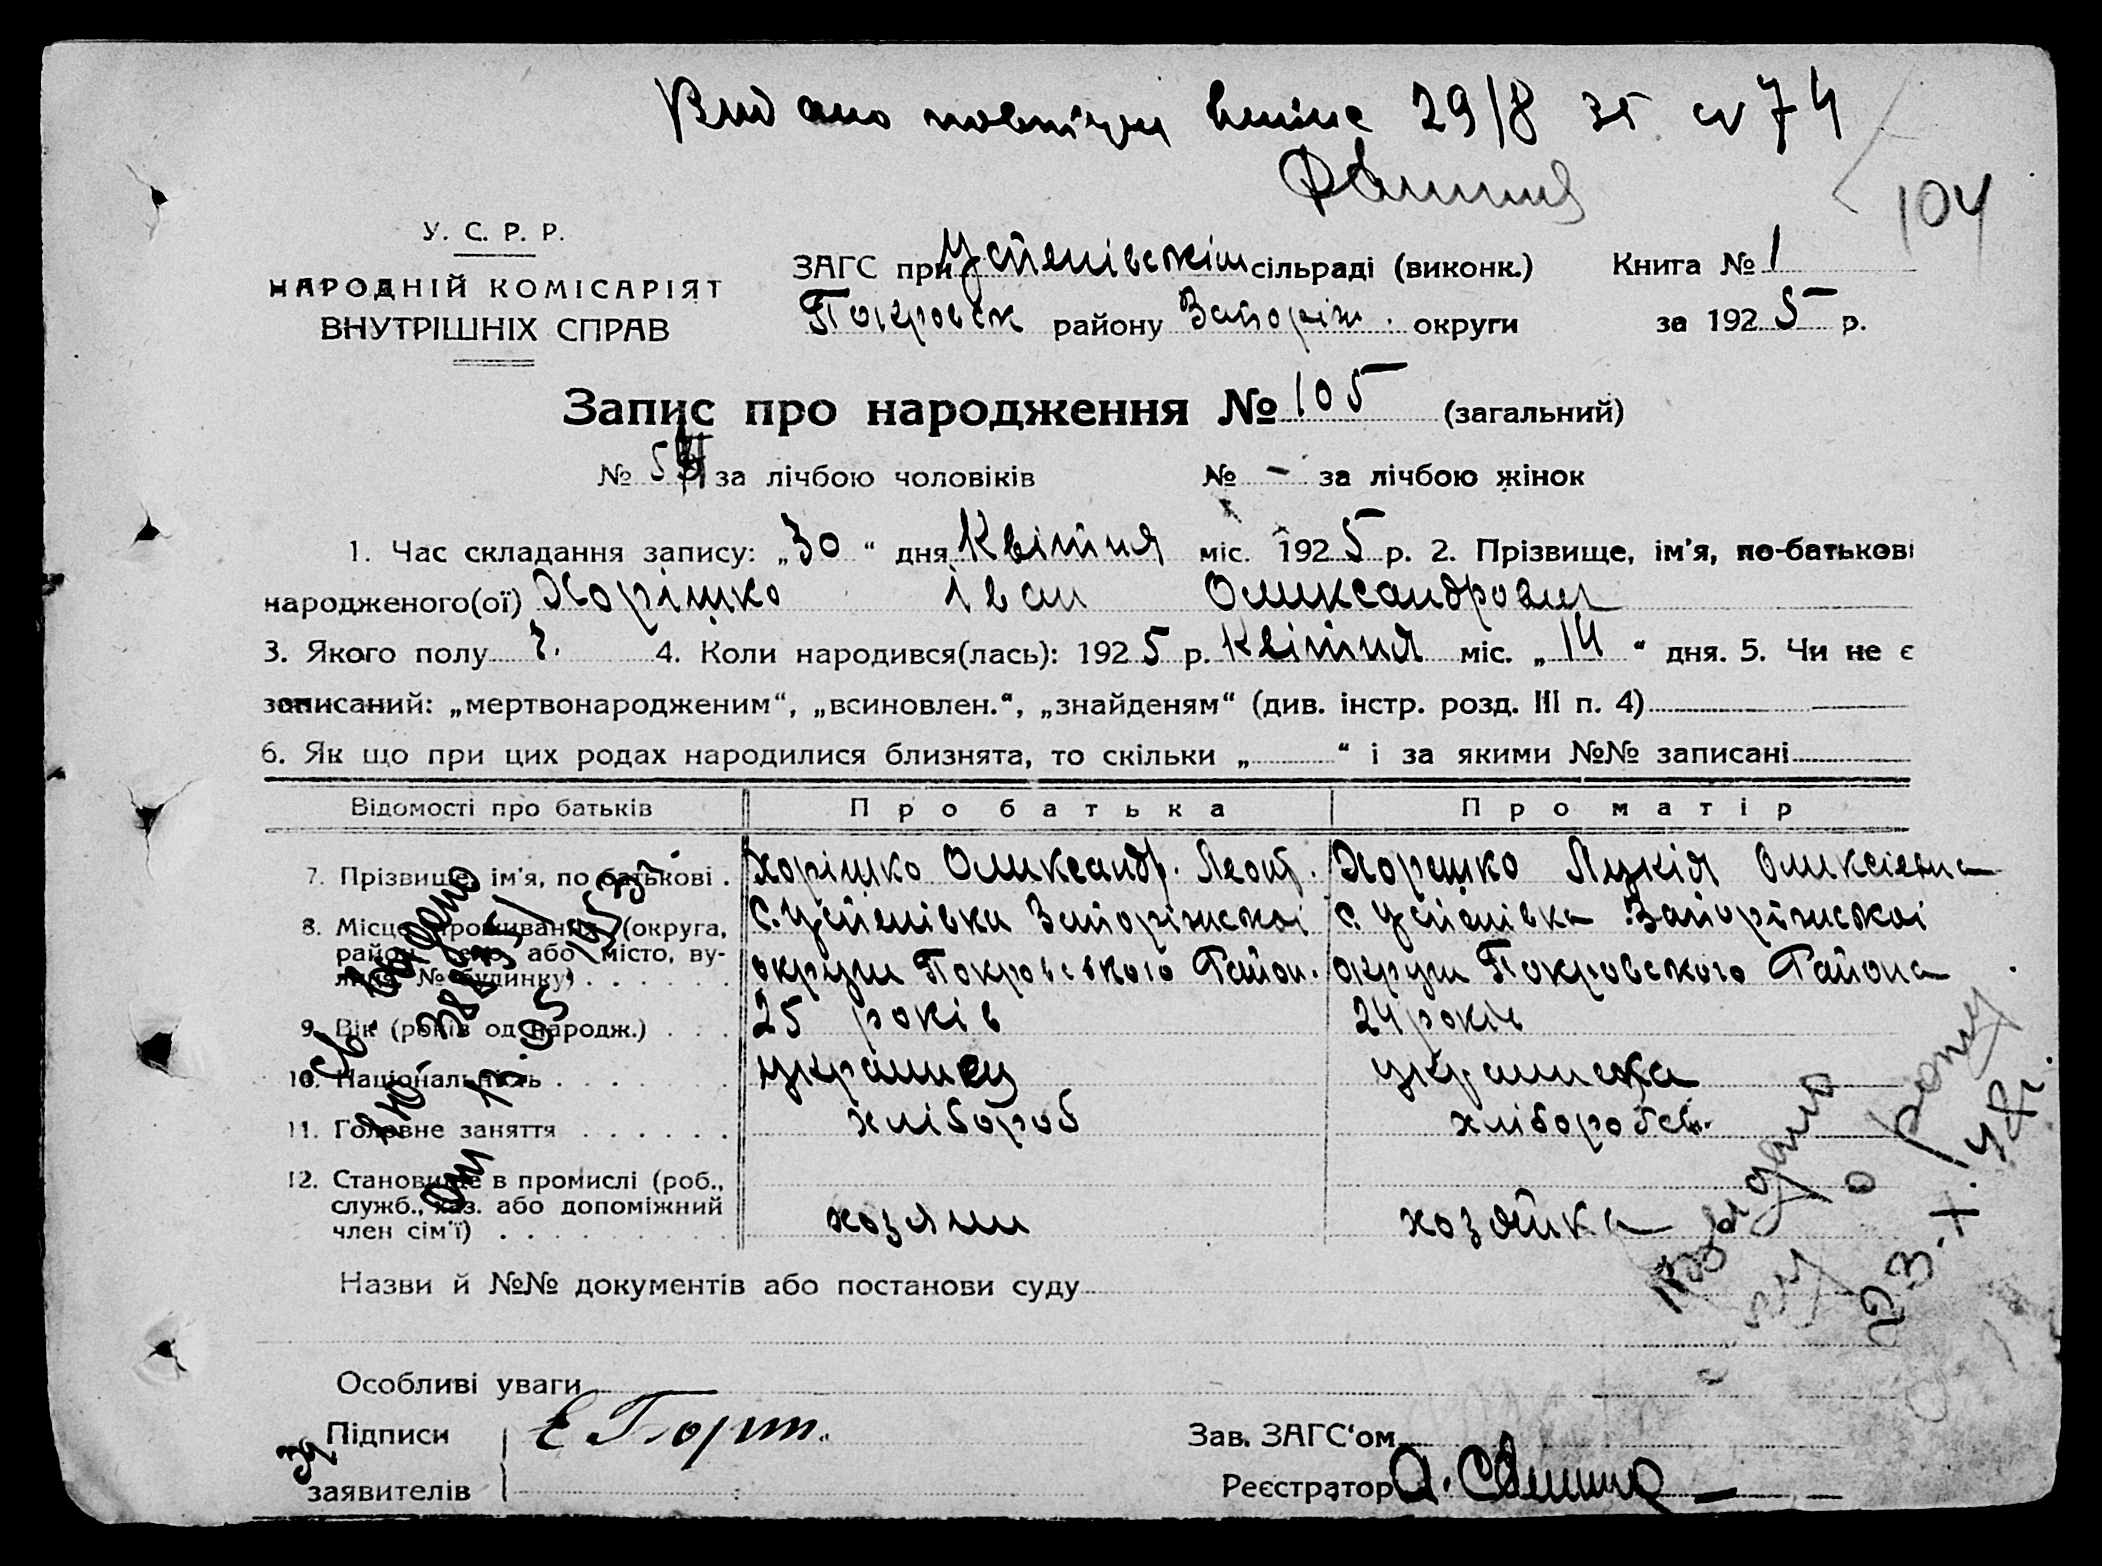 Видано 29/8 35 74
104
У. С. Р. Р.
НАРОДНІЙ КОМІСАРІЯТ
ВНУТРІШНІХ СПРАВ
ЗАГС при Успенівскім сільраді (виконк.) Книга № 1
Покровск району Запоріж. округи за 1925 р.
Запис про народження № 105 (загальний)
№ 5 за лічбою чоловіків № - за лічбою жінок
1. Час складання запису: „30“ дня Квітня міс. 1925 р. 2. Прізвище, ім’я, по-батькові
народженого(ої) Хорішко Іван Олександрович
3. Якого полу ч. 4. Коли народився(лась): 1925 р. Квітня міс. „14“ дня. 5. Чи не є
записаний: „мертвонародженим“, „всиновлен.“, „знайденям“ (див. інстр. розд. III п. 4)
6. Як що при цих родах народилися близнята, то скільки „ “ і за якими №№ записані
Відомості про батьків Про батька Про матір
7. Прізвище, ім’я, по батькові . Хорішко Олександр. Леонт. Хорешко Лукія Олексіевна
8. Місце проживання (округа, с. Успенівка Запоріжскоі с. Успенівка Запоріжскоі
район, село, або місто, ву- округи Покровского Район. округи Покровского Района
лиця, № будинку)
9. Вік (років од народж.) 25 років 24 років
10. Національність украинец украинска
11. Головне заняття хлібороб хлібороб
12. Становище в промислі (роб.,
служб., хаз. або допоміжний
член сім’ї) хозяин хозяйка
Св. выдано
от 11.05 1953 г.
выдано
о
23.X.48г.
Назви й №№ документів або постанови суду
Особливі уваги
Підписи
за заявителів
Е Борт.
Зав. ЗАГС‘ом
Реєстратор